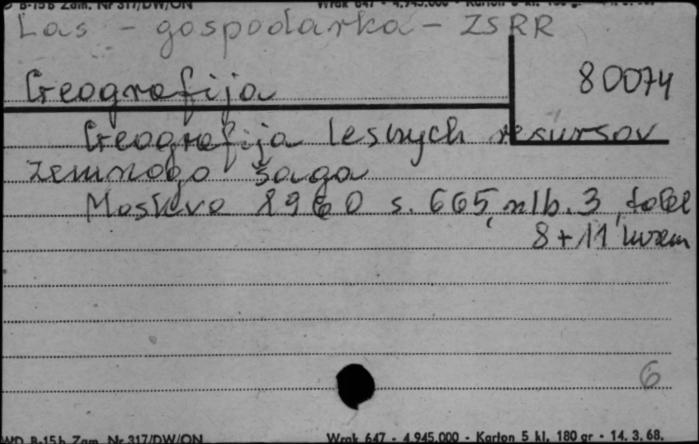 B-15b Zam. Nr 317/DW/ON Wrak 647 - 4.945.000 - Karton 5 kl. 180 gr. - 14. 3. 68.
Las - gospodarka - ZSRR
80074
Geografija
Geografija lesnych resursov
zemnogo šara
Moskva 1960 s. 665, nlb. 3, tabl
8 + 11
6
WD B-15b Zam. Nr 317/DW/ON Wrak 647 - 4.945.000 - Karton 5 kl. 180 gr - 14. 3. 68.